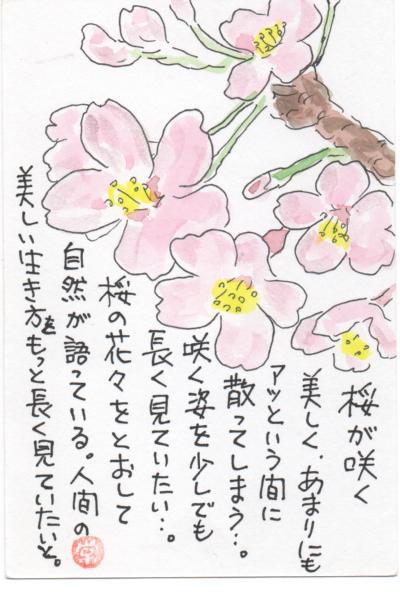 桜が咲く
美しく、あまりにも
アッという間に
散ってしまう…。
咲く姿を少しでも
長く見ていたい…。
桜の花々をとおして
自然が語っている。人間の
美しい生き方をもっと長く見ていたいと。